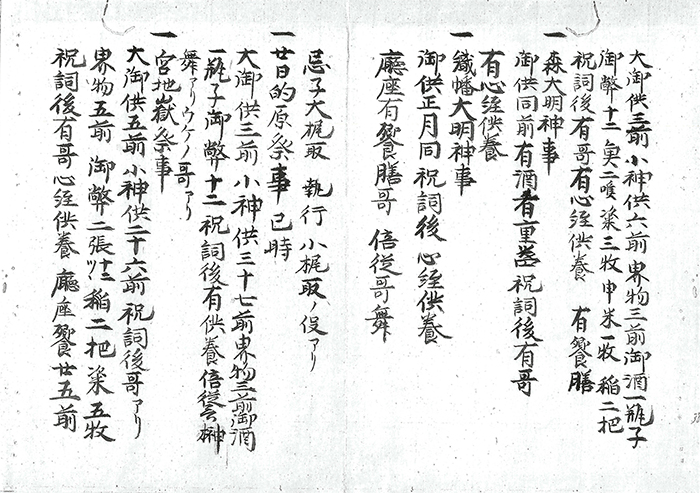 大御供三前 小神供六前 畏物三前御酒一瓶子
御幣十二 奠二喉 粢三牧 申米一牧 稲二把
祝詞後有哥 有心経供養 有饗膳
一 森大明神事
御供同前 有酒肴一重 祝詞後有哥
有心経供養
一 織幡大明神事
御供正月同 祝詞後 心経供養
廳座有饗膳哥 倍従哥舞
忌子大梶取 執行 小梶取ノ役アリ
一 廿日的原祭事 巳時
大御供三前 小神供三十七前 畏物三前御酒
一瓶子 御幣十二 祝詞後有供養 倍従 榊
舞アリウケノ哥アリ
一 宮地嶽祭事
大御供五前 小神供二十六前 祝詞後哥アリ
畏物五前 御幣二張 稲二把 粢五牧
祝詞後有哥 心経供養 廳座饗廿五前